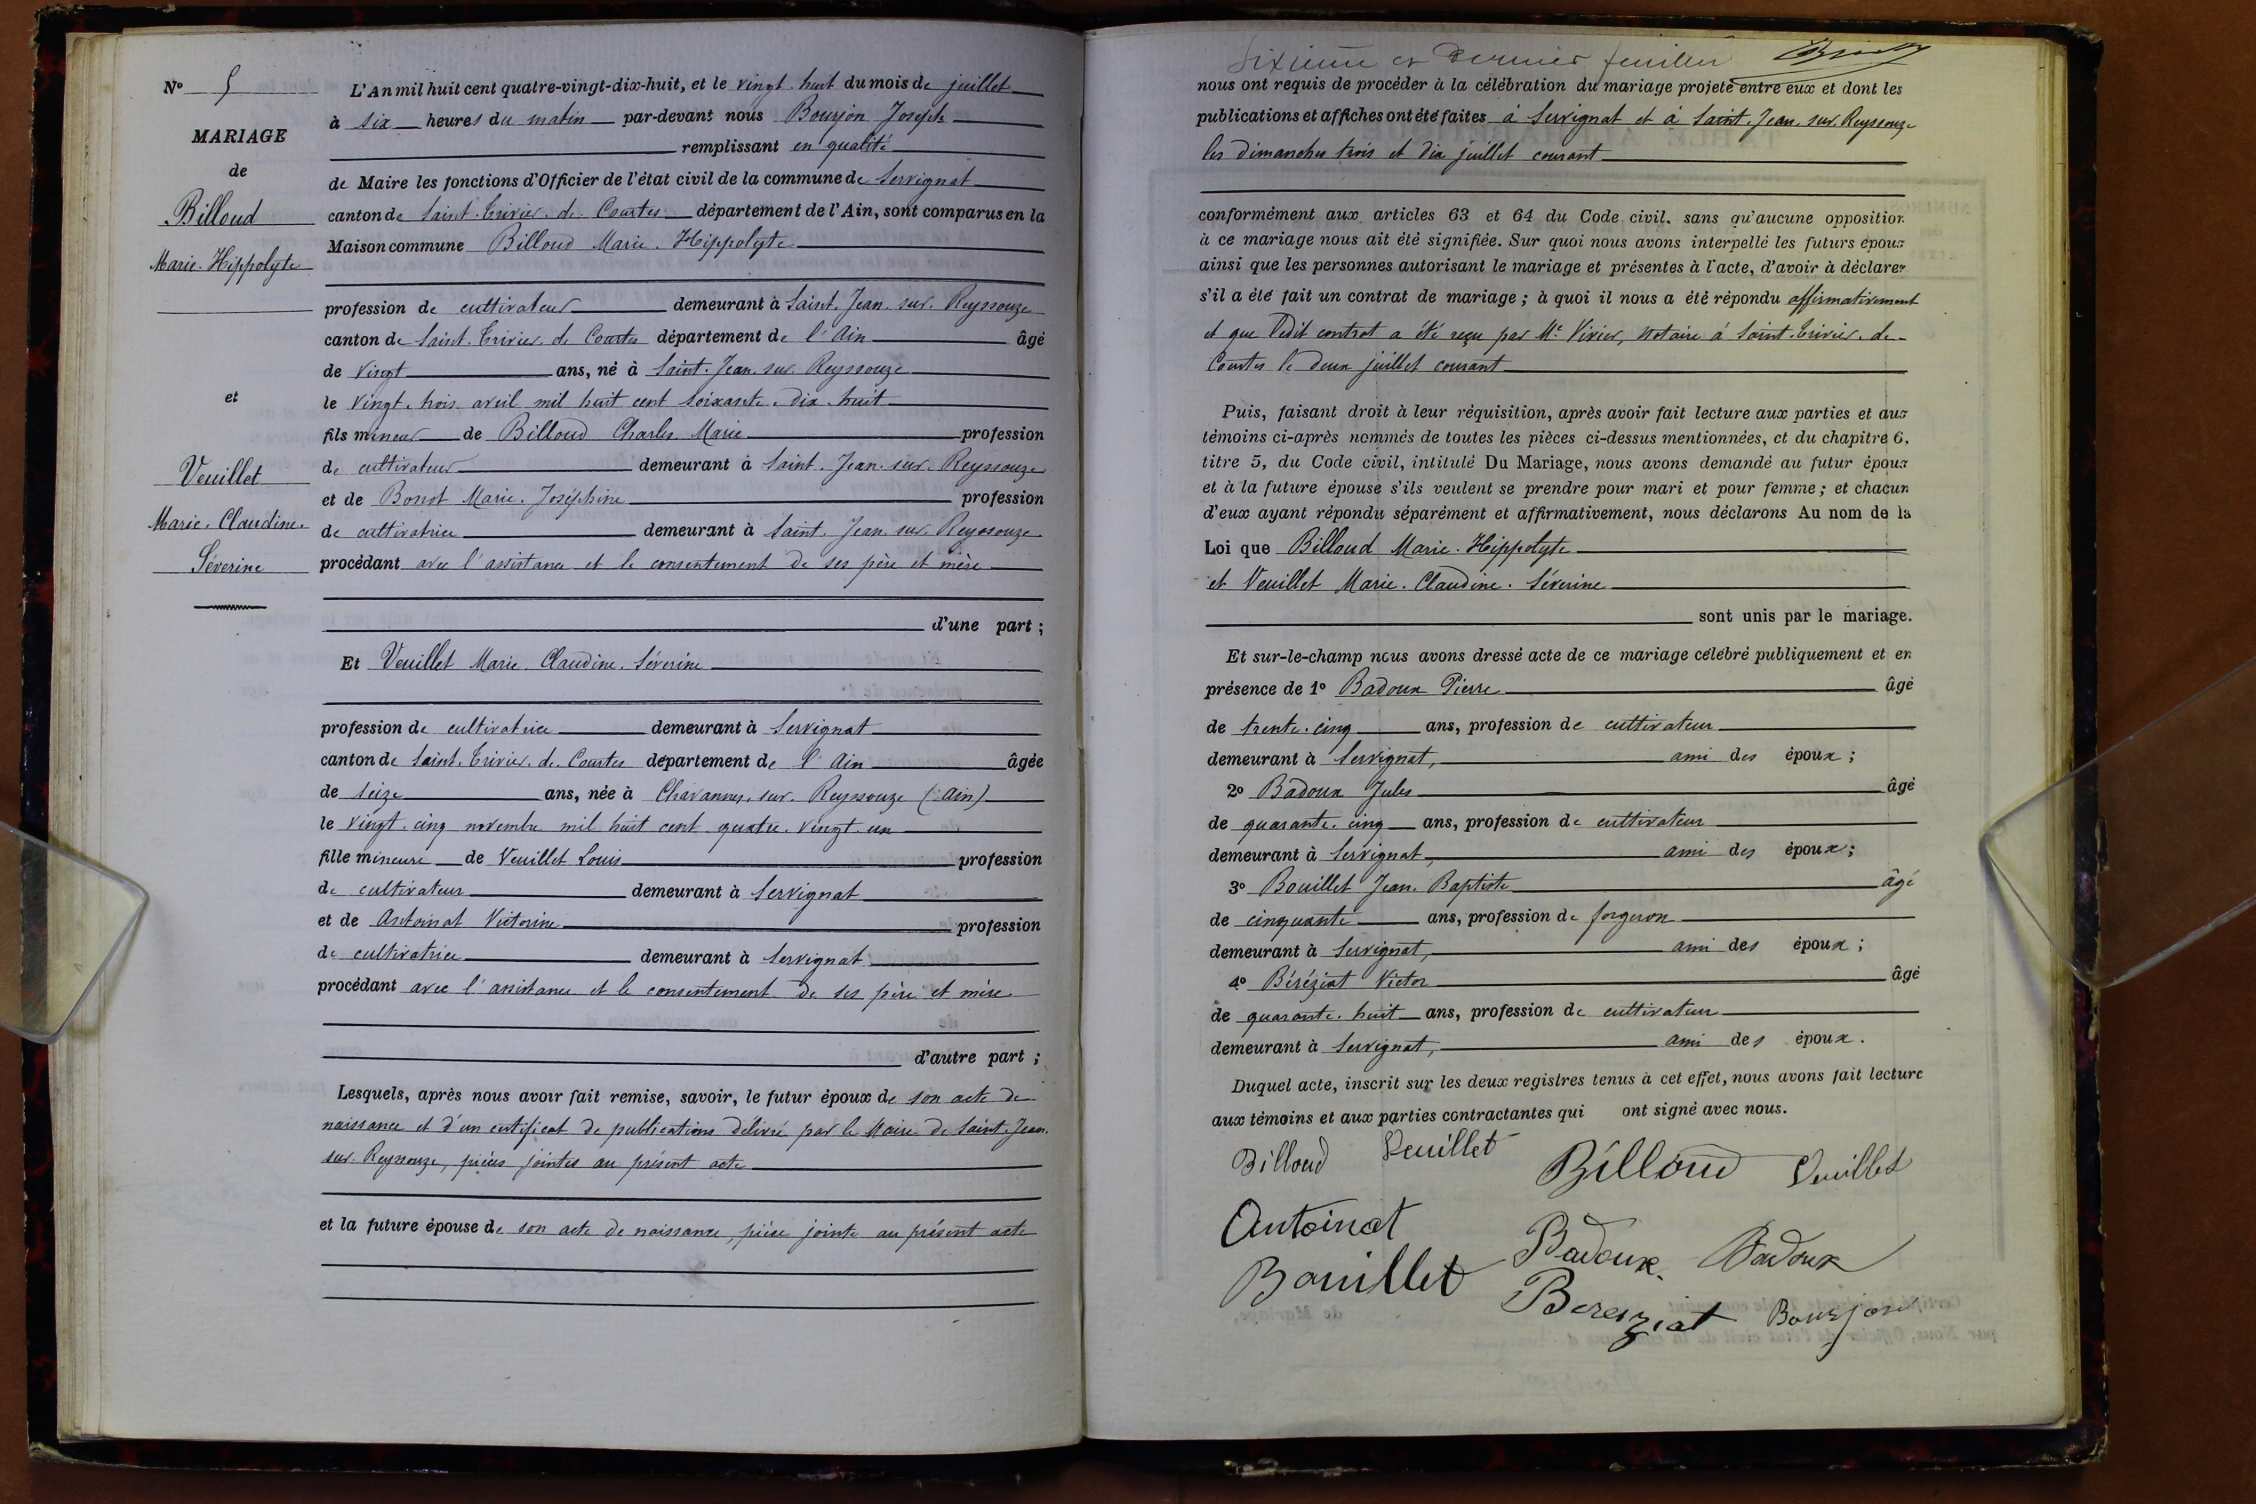 N° 5
MARIAGE
de
Billoud
Marie-Hippolyte
et
Veuillet
Marie-Claudine-
Séverine
L'An mil huit cent quatre-vingt-dix-huit, et le vingt-huit du mois de juillet
à six heures du matin par-devant nous Bourjon Joseph
remplissant en qualité
de Maire les fonctions d'Officier de l'état civil de la commune de Servignat
canton de Saint-Trivier-de-Courtes département de l'Ain, sont comparus en la
Maison commune Billoud Marie-Hippolyte
profession de cultivateur demeurant à Saint-Jean-sur-Reyssouze
canton de Saint-Trivier-de-Courtes département de l'Ain âgé
de vingt ans, né à Saint-Jean-sur-Reyssouze
le vingt-trois avril mil huit cent soixante-dix-huit
fils mineur de Billoud Charles-Marie profession
de cultivateur demeurant à Saint-Jean-sur-Reyssouze
et de Marie-Joséphine profession
de cultivatrice demeurant à Saint-Jean-sur-Reyssouze
procédant avec l'assistance et le consentement de ses père et mère
d'une part ;
Et Veuillet Marie-Claudine-Séverine
profession de cultivatrice demeurant à Servignat
canton de Saint-Trivier-de-Courtes département de l'Ain âgée
de seize ans, née à Chavannes-sur-Reyssouze (Ain)
le vingt-cinq novembre mil huit cent quatre-vingt-un
fille mineure de Veuillet Louis profession
de cultivateur demeurant à Servignat
et de Antoinat Victorine profession
de cultivatrice demeurant à Servignat
procédant avec l'assistance et le consentement de ses père et mère
d'autre part ;
Lesquels, après nous avoir fait remise, savoir, le futur époux de son acte de
naissance et d'un certificat de publications délivré par le Maire de Saint-Jean-
sur-Reyssouze, pièces jointes au présent acte
et la future épouse de son acte de naissance, pièce jointe au présent acte
Sixième et dernier feuillet
nous ont requis de procéder à la célébration du mariage projeté entre eux et dont les
publications et affiches ont été faites à Servignat et à Saint-Jean-sur-Reyssouze
les dimanches trois et dix juillet courant
conformément aux articles 63 et 64 du Code civil, sans qu'aucune opposition
à ce mariage nous ait été signifiée. Sur quoi nous avons interpellé les futurs époux
ainsi que les personnes autorisant le mariage et présentes à l'acte, d'avoir à déclarer
s'il a été fait un contrat de mariage ; à quoi il nous a été répondu affirmativement
et que ledit contrat a été reçu par Me Vivier, notaire à Saint-Trivier-de-
Courtes le deux juillet courant
Puis, faisant droit à leur réquisition, après avoir fait lecture aux parties et aux
témoins ci-après nommés de toutes les pièces ci-dessus mentionnées, et du chapitre 6,
titre 5, du Code civil, intitulé Du Mariage, nous avons demandé au futur époux
et à la future épouse s'ils veulent se prendre pour mari et pour femme ; et chacun
d'eux ayant répondu séparément et affirmativement, nous déclarons Au nom de la
Loi que Billoud Marie-Hippolyte
et Veuillet Marie-Claudine-Séverine
sont unis par le mariage.
Et sur-le-champ nous avons dressé acte de ce mariage célébré publiquement et en
présence de 1° Badoux Pierre âgé
de trente-cinq ans, profession de cultivateur
demeurant à Servignat, ami des époux ;
2° Badoux Jules âgé
de quarante-cinq ans, profession de cultivateur
demeurant à Servignat, ami des époux ;
3° Bouillet Jean-Baptiste âgé
de cinquante ans, profession de forgeron
demeurant à Servignat, ami des époux ;
4° Béréziat Victor âgé
de quarante-huit ans, profession de cultivateur
demeurant à Servignat, ami des époux.
Duquel acte, inscrit sur les deux registres tenus à cet effet, nous avons fait lecture
aux témoins et aux parties contractantes qui ont signé avec nous.
Billoud Veuillet Billoud Veuillet
Antoinat Badoux Badoux
Bouillet Bereziat Bourjon